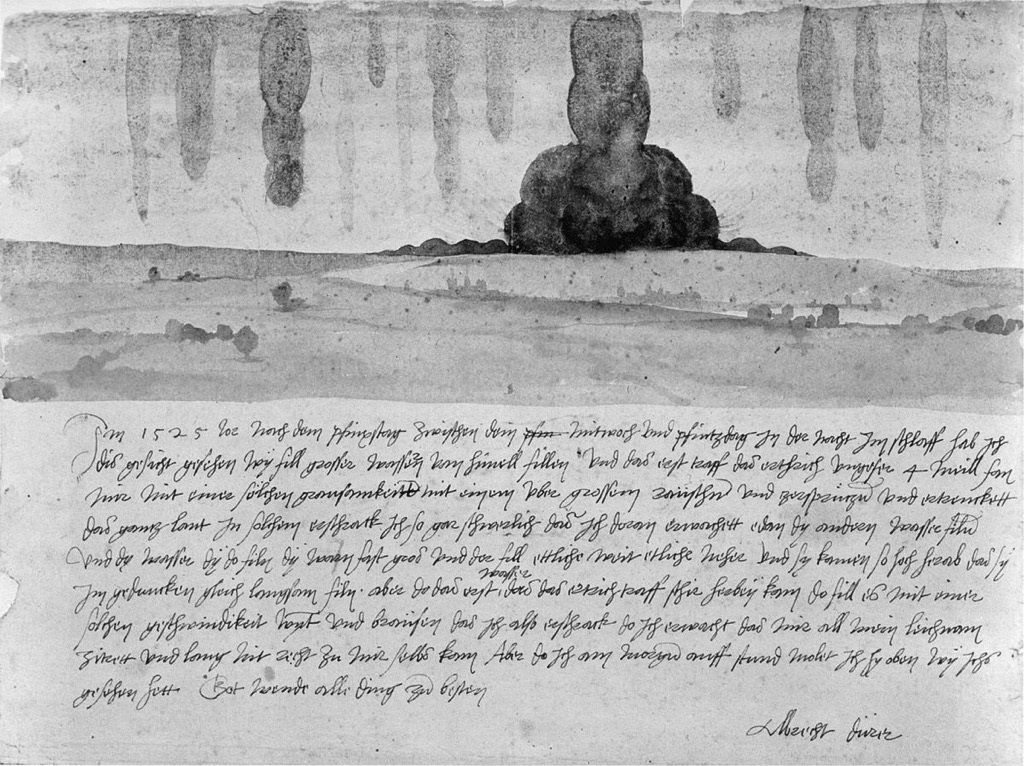 Im 1525 Jor noch dem pfinxstag zwischen dem pfin mitwoch und pfintzdag in der nacht im schlaff hab ich
dis gesicht gesehen wy fill grosser wassern vom himell fillen Und das erst traff das erthrich ungefer 4 meill fan
mir mit einer solchen grausamkeitt mit einem uber grossem raüschn und zersprützn und ertrenckett
das gantz lant In solchem erschrack ich so gar schwerlich das ich doran erwachett e dan dy andern wasser filn
Und dy wasser dy do filn dy warn fast gros und der fill ettliche weit etliche neher und sy kamen so hoch herab das sy
im geduncken gleich langsam filn. aber do das erst wasser das das ertrich traff schir herbey kam do fill es mit einer
solchen geschwindikeit wynt und braüsen das ich also erschrack do ich erwacht das mir all mein leichnam
zitrett und lang nit recht zu mir selbs kam Aber do ich am morgn auff stund molet ich hy oben wy ichs
gesehen hett. Got wende alle ding zu besten
Albrecht dürer